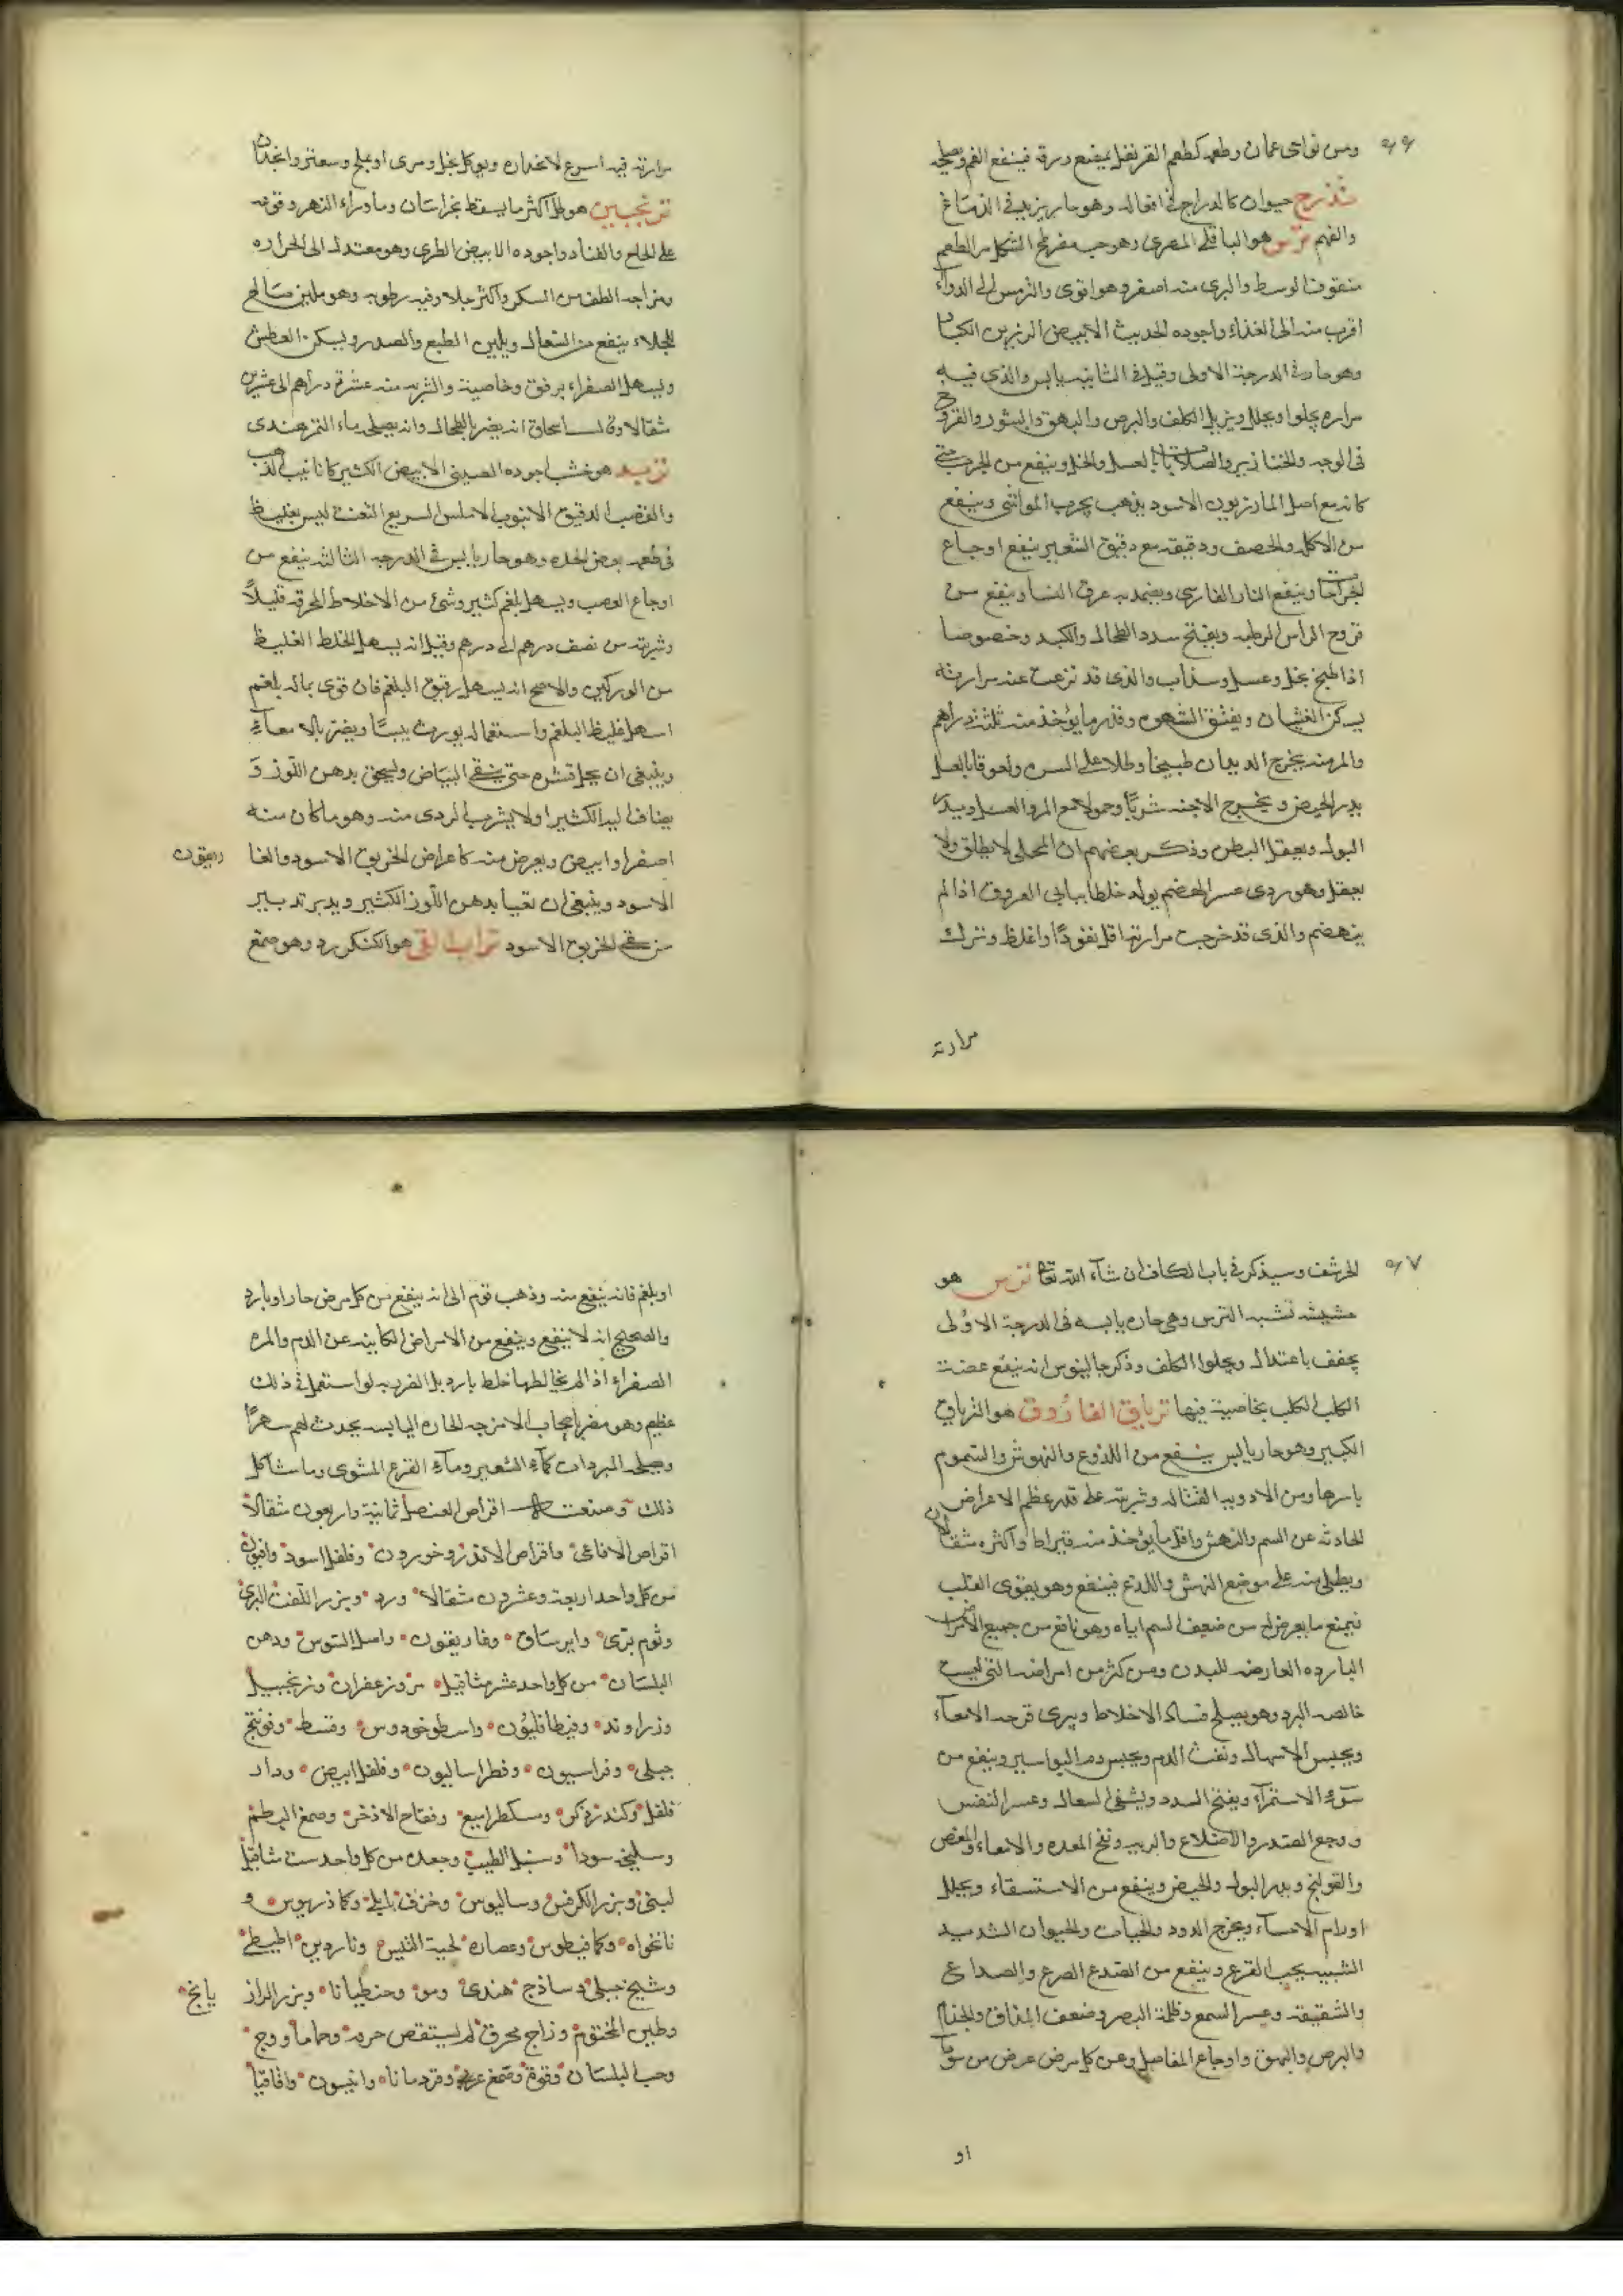 ٩٦
ومن نواحى عمان وطعمه كطعم القرنفل يمضغ ورقه فينفع الفم ويصلحه
تذرج حيوان كالدراج فى افعاله وهو حار يزيد فى الدماغ
والفهم ترمس هو الباقلى المصرى وهو حب مفرطح الشكل مر الطعم
منقوت الوسط والبرى منه اصفر وهو اقوى والترمس الى الدواء
اقرب منه الى الغذاء واجوده الحديث الابيض الرزين الكبار
وهو حار فى الدرجة الاولى وقيل فى الثانيه يابس والذى فيه
مراره يجلوا ويحلل ويزيل الكلف والبرص والبهق والبثور والقروح
فى الوجه والخنازير والصلابات بالعسل والخل وينفع من الجرب حتى
كانه مع اصل المازريون الاسود يذهب بجرب المواشى وينفع
من الاكله والحصف ودقيقه مع دقيق الشعير ينفع اوجاع
الجراحات وينفع النار الفارسى ويضمد به عرق النسا وينفع من
قروح الراس الرطبه ويفتح سدد الطحال والكبد وخصوصا
اذا طبخ بخل وعسل وسذاب والذى قد نزعت عنه مرارته
يسكن الغثيان ويفتق الشهوه وقدر ما يؤخذ منه ثلثة دراهم
والمر منه يخرج الديدان طبيخا وطلا على السره ولعوقا بالعسل
يدر الحيض ويخرج الاجنه شربًا وحمولا مع المر والعسل ويدر
البول ويعقل البطن وذكر بعضهم ان المحلى لا يطلق ولا
يعقل وهو ردى عسر الهضم يولد خلطا نيا فى العروق اذا لم
ينهضم والذى قد خرجت مرارته اقل نفوذًا واغلظ ونزلك
مرارته
مرارته فيه اسرع لانحداره ويوكل بخل ومرى او بملح وسعتر وانجدان
ترنجبين هو طل اكثر ما يسقط بخراسان وما وراء النهر وقوعه
على الحاج والقتاد واجوده الابيض الطرى وهو معتدل الى الحراره
ومزاجه الطف من السكر واكثر جلا وفيه رطوبه وهو ملين صالح
للجلاء ينفع من السعال ويلين الطبع والصدر ويسكن العطش
ويسهل الصفراء برفق وخاصية والشربه منه عشرة دراهم الى عشرين
مثقالا وقال اسحاق انه يضر بالطحال وانه يصلح بماء التمر هندى
تربد هو خشب اجوده الصينى الابيض الكثير كانابيب القصب
والقضب الدقيق الانبوب الاملس السريع التفتت ليس بغليظ
فى طعمه بعض الحده وهو حار يابس فى الدرجه الثالثه ينفع من
اوجاع العصب ويسهل بلغم كثير وشئ من الاخلاط المحرقه قليلاً
وشربته من نصف درهم الى درهم وقيل انه يسهل الخلط الغليظ
من الوركين والاصح انه يسهل رقيق البلغم فان قوى بماله بلغم
اسهل غليظ البلغم واستعماله يورث يبسًا ويضر بالامعاء
وينبغى ان يحك قشره حتى ينقى البياض وليحق بدهن اللوز و
يضاف اليه الكثيرا ولا يشرب الردى منه وهو ما كان منه
اصفر او ابيض ويعرض منه كاعراض الخربق الاسود والغا
ريقون
الاسود وينبغى ان تقيأ بدهن اللوز الكثير ويدبر تدبير
من سقى الخربق الاسود تراب القى هو الكنكرزد وهو صمغ
٩٧
الحرشف وسيذكر فى باب الكاف ان شآء الله تعالى ترس هو
حشيشه تشبه الترس وهى حاره يابسه فى الدرجة الاولى
يجفف باعتدال ويجلوا الكلف وذكر جالينوس انه ينفع عضة
الكلب الكلب بخاصية فيها ترياق الفاروق هو الترياق
الكبير وهو حار يابس ينفع من اللذوع والنهوش والسموم
باسرها ومن الادويه القتاله وشربته على قدر عظم الاعراض
الحادثه عن السم والنهش واقل ما يؤخذ منه قيراط واكثره مثقالان
ويطلى منه على موضع النهش واللدغ فينفع وهو يقوى القلب
فيمنع ما يعرض له من ضعف السم اياه وهو نافع من جميع الامراض
البارده العارضه للبدن ومن كثر من امراضه التى ليست
خالصه البرد وهو يصلح فساد الاخلاط ويبرى قرحه الامعاء
ويحبس الاسهال ونفث الدم ويحبس دم البواسير وينفع من
سؤ الاستمرآء ويفتح السدد ويشفى السعال وعسر النفس
ووجع الصدر والاضلاع والربو ونفخ المعده والامعاء والمغص
والقولنج ويدر البول والحيض وينفع من الاستسقاء ويحلل
اورام الاحشاء ويخرج الدود والحيات والحيوان الشديد
الشبيه بحب القرع وينفع من الصدع الصرع والصداع
والشقيقه وعسر السمع وظلمة البصر وضعف المذاق والجذام
والبرص والبهق واوجاع المفاصل وعن كل مرض عرض من سوداء
او
او بلغم فانه ينفع منه وذهب قوم الى انه ينفع من كل مرض حار او بارد
والصحيح انه لا ينفع وينفع من الامراض الكاينه عن الدم والمره
الصفراء اذا لم يخالطها خلط بارد بل الضرر به لو استعمل فى ذلك
عظيم وهو مضر باصحاب الامزجه الحاره اليابسه يحدث لهم سهرًا
ويصلحه المبردات كمآء الشعير ومآء القرع المشوى وما شاكل
ذلك وصنعته اقراص العنصل ثمانية واربعون مثقالاً
اقراص الافاعى واقراص الاندروخورون وفلفل اسود وافيون
من كل واحد اربعة وعشرون مثقالا ورد وبزر اللفت البرى
وثوم برى وايرساق وغاريقون واصل السوس ودهن
البلسان من كل واحد عشر مثاقيل مر وزعفران وزنجبيل
وزراوند وفيطافليون واسطوخودوس وقسط وفوتنج
جبلى وفراسيون وفطراساليون وفلفل ابيض ودار
فلفل وكندر ذكر ومسكطرامبيع وفقاح الاذخر وصمغ البطم
وسليخه سودا وسنبل الطيب وجعده من كل واحد ست مثاقيل
لبنى وبزر الكرفس وساليوس وخرف بابلى وكماذريوس و
نانخواه وكمافيطوس وعصاره لحية التيس وناردين اقليطى
وشيح جبلى وساذج هندى ومو وجنطيانا وبزر الراز
يانج
وطين المختوم وزاج محرق لم يستقص حرقه وحماما ووج
وحب البلسان وفوة وصمغ عربى وقردمانا وانيسون واقاقيا